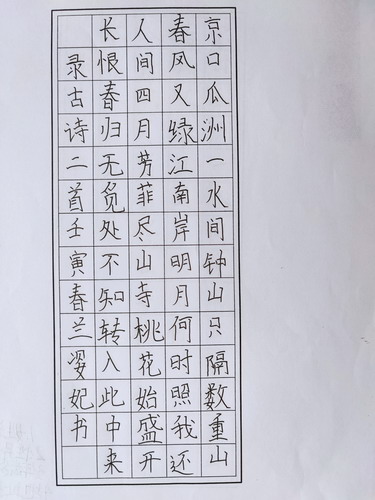 京口瓜洲一水间钟山只隔数重山
春风又绿江南岸明月何时照我还
人间四月芳菲尽山寺桃花始盛开
长恨春归无觅处不知转入此中来
录古诗二首壬寅春兰姿妃书